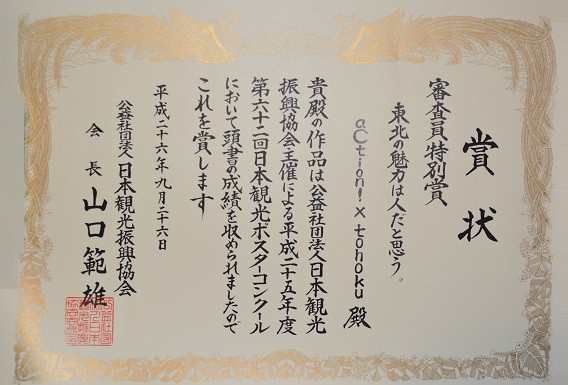 賞状
審査員特別賞
東北の魅力は人だと思う。
action! × tohoku 殿
貴殿の作品は公益社団法人日本観光
振興協会主催による平成二十五年度
第六十二回日本観光ポスターコンクール
において頭書の成績を収められましたので
これを賞します
平成二十六年九月二十六日
公益社団法人 日本観光振興協会
会長 山口範雄